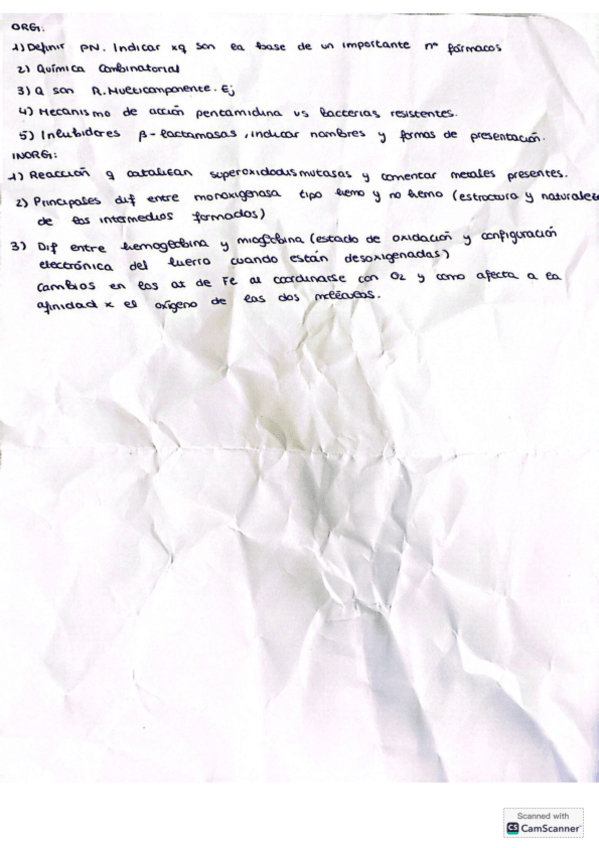 ORG:
1) Definir PN. Indicar xq son la base de un importante nº fármacos
2) Química Combinatorial
3) Q son R. Multicomponente. Ej
4) Mecanismo de acción pentamidina vs bacterias resistentes.
5) Inhibidores β-lactamasas, indicar nombres y formas de presentación.
INORG:
1) Reacción q catalizan superoxidodusmutasas y comentar metales presentes.
2) Principales dif entre monoxigenasa tipo hemo y no hemo (estructura y naturalez
de los intermedios formados)
3) Dif entre hemoglobina y mioglobina (estado de oxidación y configuración
electrónica del hierro cuando están desoxigenadas)
cambios en los at de Fe al coordinarse con O2 y como afecta a la
afinidad x el oxígeno de las dos moléculas.
Scanned with
CS CamScanner